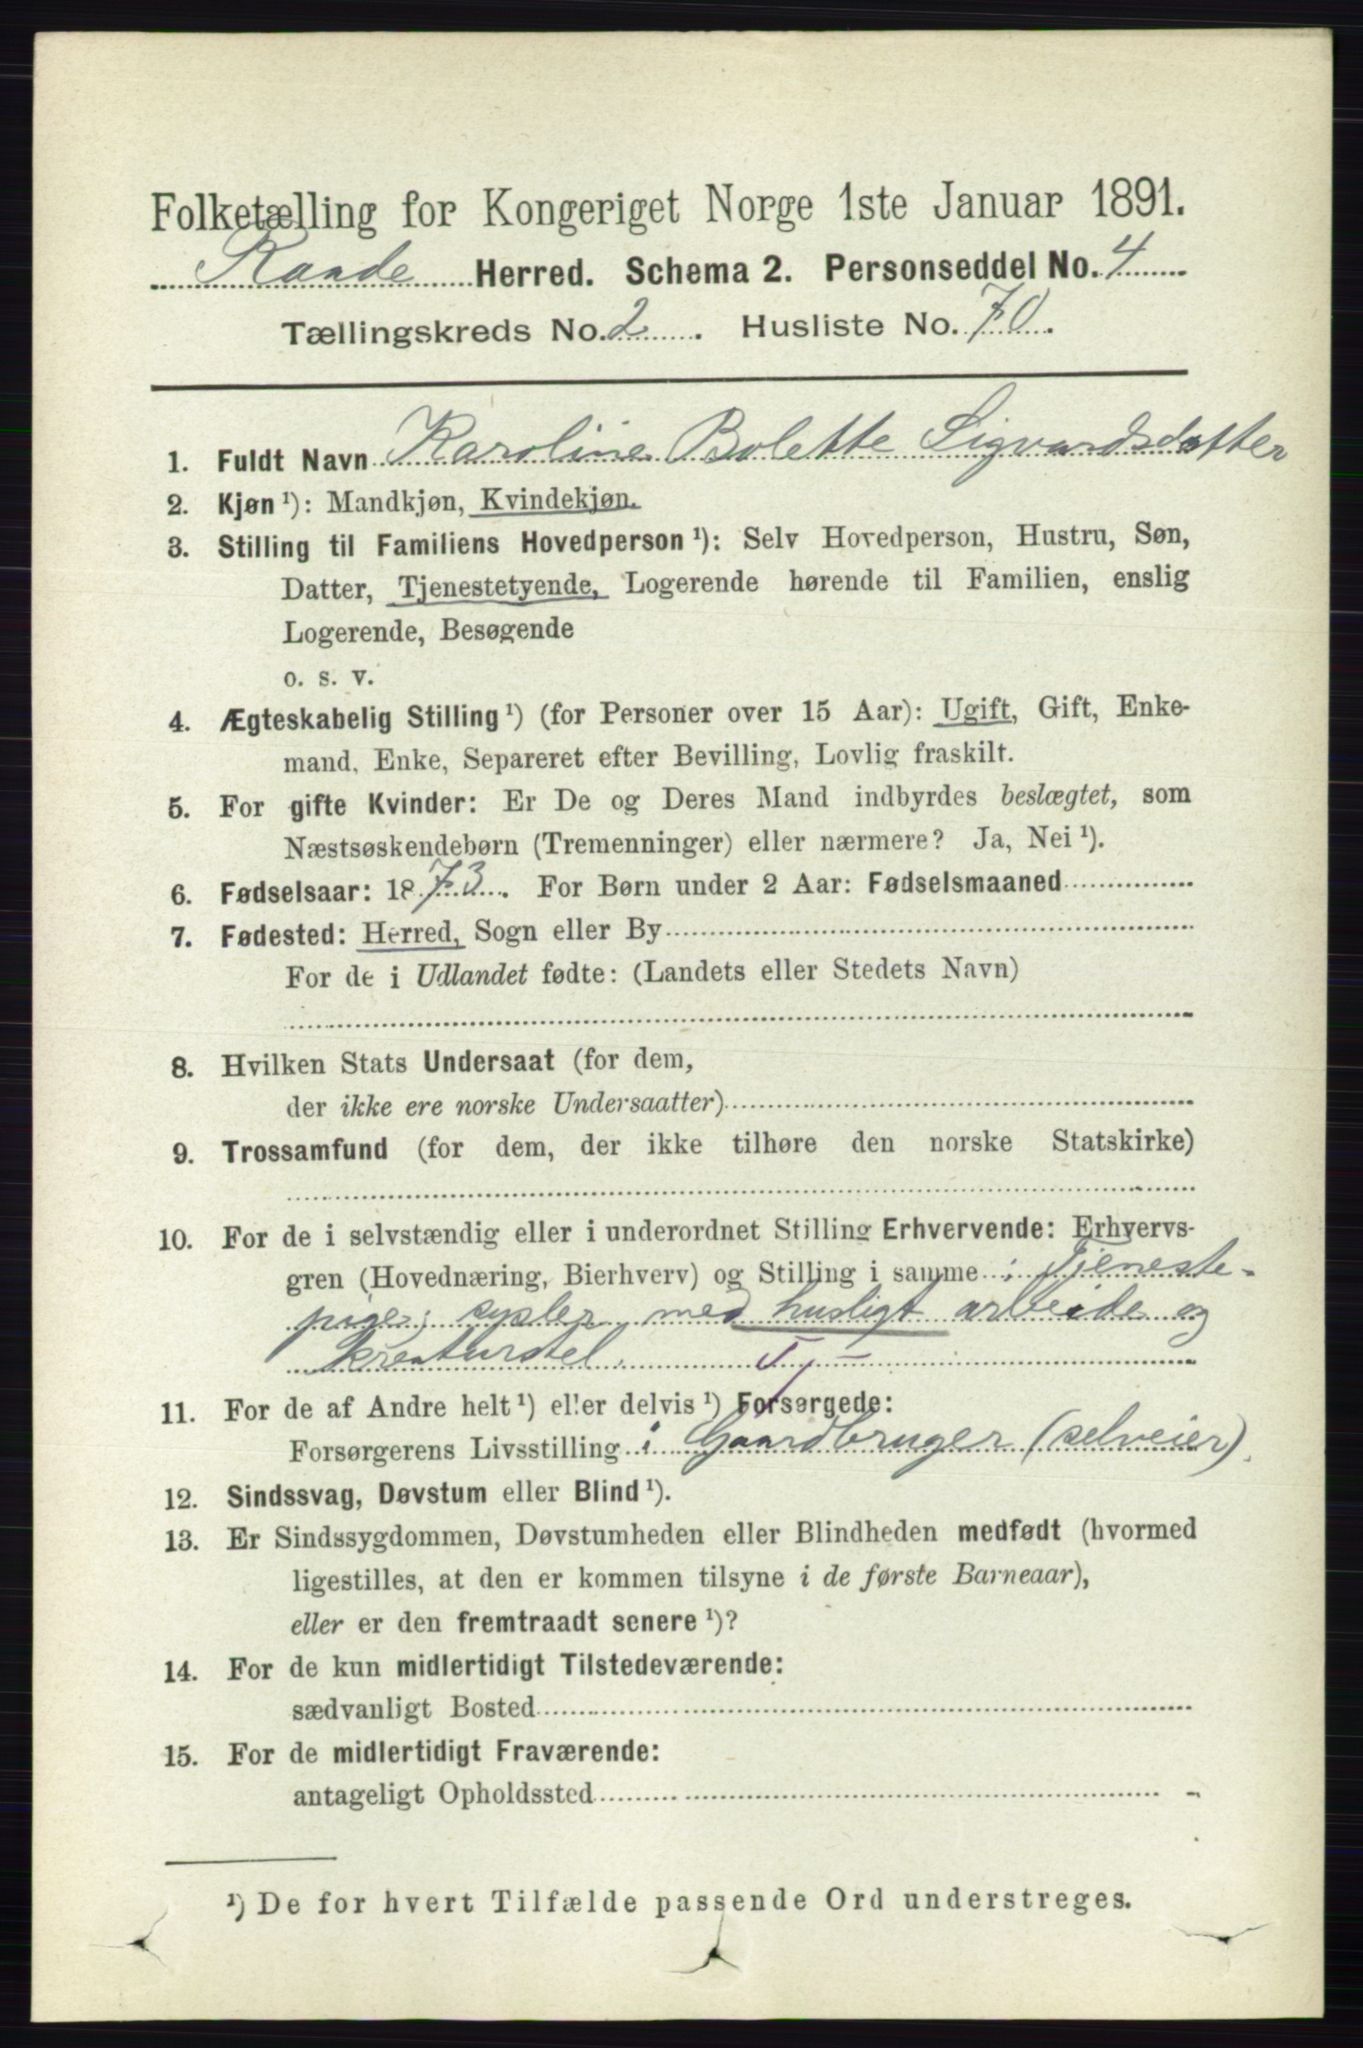 Folketælling for Kongeriget Norge 1ste Januar 1891.
Raade Herred. Schema 2. Personseddel No. 4
Tællingskreds No. 2. Husliste No. 70.
1. Fuldt Navn Karoline Bolette Sigvardsdatter
2. Kjøn ¹): Mandkjøn, Kvindekjøn.
3. Stilling til Familiens Hovedperson ¹): Selv Hovedperson, Hustru, Søn,
Datter, Tjenestetyende, Logerende hørende til Familien, enslig
Logerende, Besøgende
o. s. v.
4. Ægteskabelig Stilling ¹) (for Personer over 15 Aar): Ugift, Gift, Enke-
mand, Enke, Separeret efter Bevilling, Lovlig fraskilt.
5. For gifte Kvinder: Er De og Deres Mand indbyrdes beslægtet, som
Næstsøskendebørn (Tremenninger) eller nærmere? Ja, Nei ¹).
6. Fødselsaar: 1873. For Børn under 2 Aar: Fødselsmaaned
7. Fødested: Herred, Sogn eller By
For de i Udlandet fødte: (Landets eller Stedets Navn)
8. Hvilken Stats Undersaat (for dem,
der ikke ere norske Undersaatter)
9. Trossamfund (for dem, der ikke tilhøre den norske Statskirke)
10. For de i selvstændig eller i underordnet Stilling Erhvervende: Erhvervs-
gren (Hovednæring, Bierhverv) og Stilling i samme : Tjeneste-
pige; sysler med husligt arbeide og
kreaturstel.
11. For de af Andre helt ¹) eller delvis ¹) Forsørgede:
Forsørgerens Livsstilling : Gaardbruger (selveier).
12. Sindssvag, Døvstum eller Blind ¹).
13. Er Sindssygdommen, Døvstumheden eller Blindheden medfødt (hvormed
ligestilles, at den er kommen tilsyne i de første Barneaar),
eller er den fremtraadt senere ¹)?
14. For de kun midlertidigt Tilstedeværende:
sædvanligt Bosted
15. For de midlertidigt Fraværende:
antageligt Opholdssted
¹) De for hvert Tilfælde passende Ord understreges.